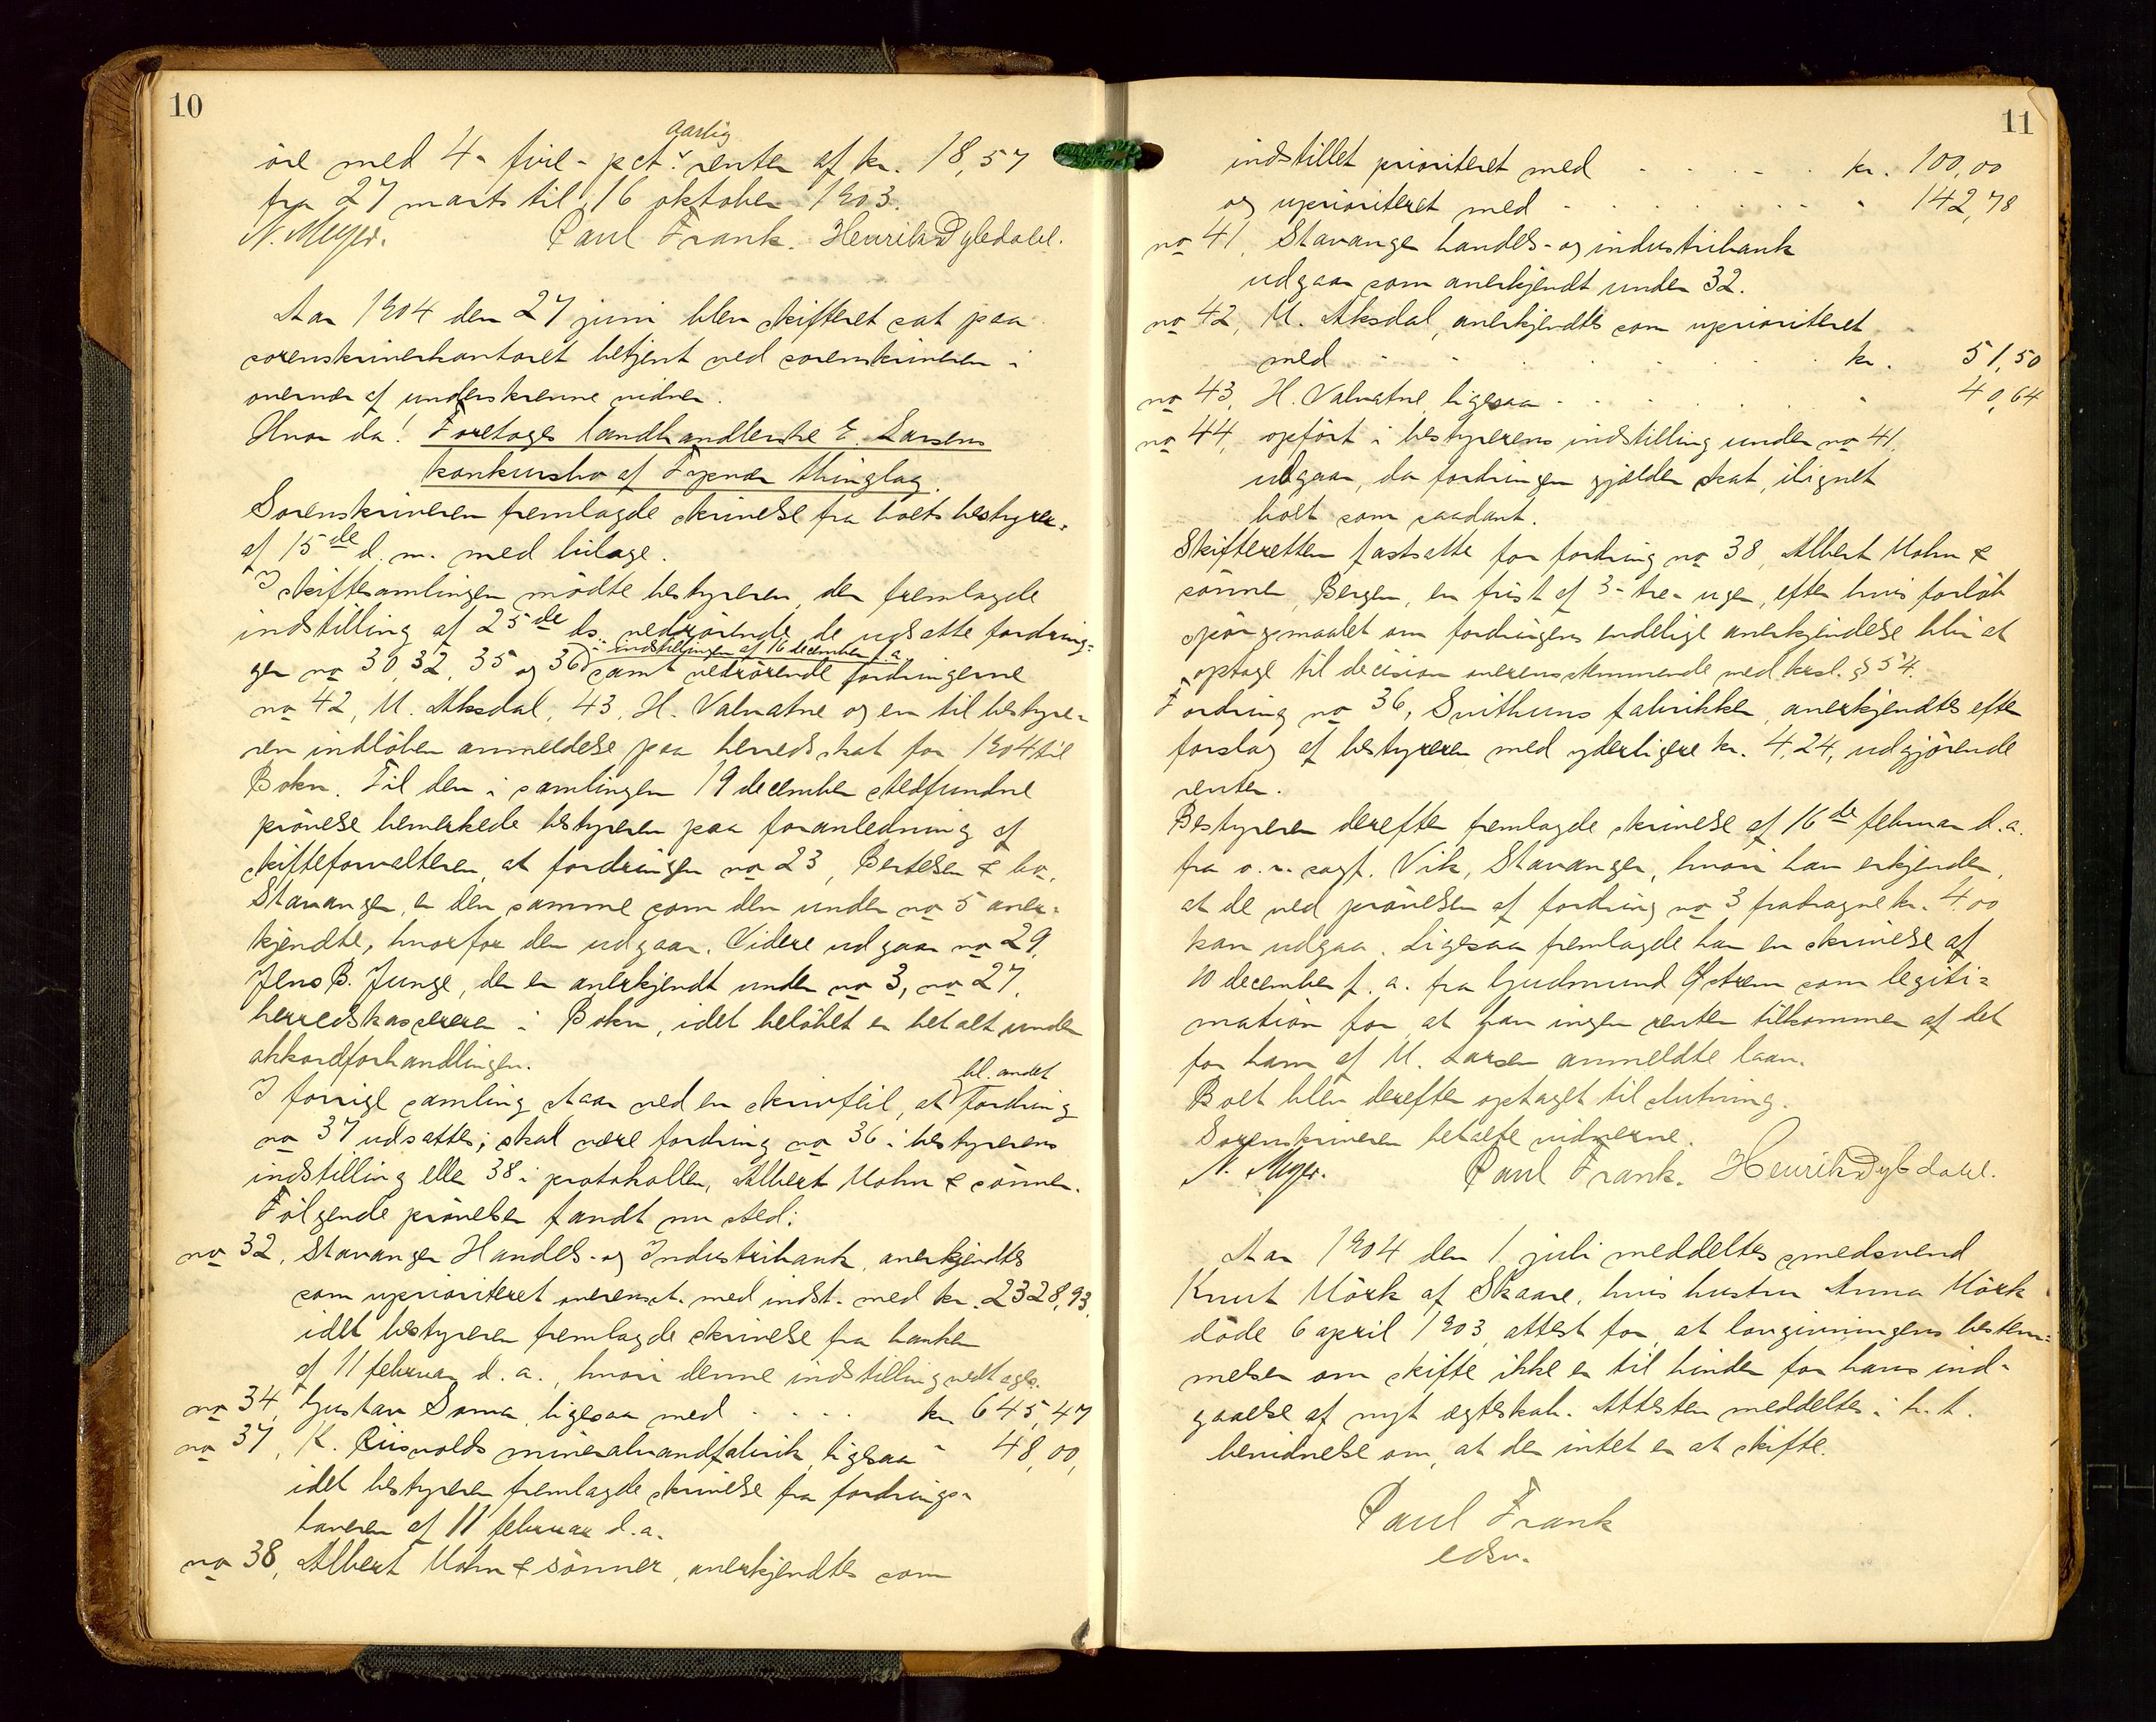 10
aarlig
öre med 4- fire- pct. renter af kr. 18,57
fra 27 marts til 16 oktober 1903.
N. Meyer. Paul Frank. Henrik Dybdahl.
Aar 1904 den 27 juni blev skifteret sat paa
sorenskriverkontoret betjent ved sorenskriveren i
overvær af underskrevne vidner.
Hvor da! Foretoges landhandlerske E. Larsens
konkursbo af Tysvær thinglag.
Sorenskriveren fremlagde skrivelse fra boets bestyrer
af 15de d. m. med bilage.
I skiftesamlingen mödte bestyreren, der fremlagde
indstilling af 25de ds. vedrörende de udsatte fordrin-
indstillingen af 16 december f. a.
ger no 30, 32, 35 og 36 samt vedrörende fordringerne
no 42, M. Aksdal, 43, H. Valvatne og en til bestyre-
ren indlöben anmeldelse paa herredskat for 1904 til
Bokn. Til den i samlingen 19 december stedfundne
prövelse bemerkede bestyreren paa foranledning af
skifteforvalteren, at fordringen no 23, Bertelsen & co.
Stavanger, er den samme som den under no 5 aner-
kjendte, hvorfor den udgaar. Videre udgaar no 29,
Jens B. Junge, der er anerkjendt under no 3, no 27,
herredskasserer i Bokn, idet belöbet er betalt under
akkordforhandlingen.
bl. andet
I forrige samling staar ved en skrivfeil, at fordring
no 37 udsattes; skal være fordring no 36 i bestyrerens
indstilling eller 38 i protokollen, Albert Mohn & sönner.
Fölgende prövelser fandt nu sted:
no 32, Stavanger Handels- og Industribank, anerkjendtes
som uprioriteret overenst. med indst. med kr. 2328,93,
idet bestyreren fremlagde skrivelse fra banken
af 11 februar d. a., hvori denne indstilling vedtages.
no 34, Gustav Sømme, ligesaa med . . . . kr 645,47
no 37, K. Riisvolds mineralvandfabrik, ligesaa " 48,00,
idet bestyreren fremlagde skrivelse fra fordrings-
haveren af 11 februar d. a.
no 38, Albert Mohn & sönner, anerkjendtes som
11
indstillet prioriteret med . . . . . kr. 100,00
og uprioriteret med . . . . . . . " 142,78
no 41, Stavanger handels- og industribank
udgaar som anerkjendt under 32.
no 42, M. Aksdal, anerkjendtes som uprioriteret
med . . . . . . . . kr. 51,50
no 43, H. Valvatne, ligesaa . . . . . . " 40,64
no 44, opfört i bestyrerens indstilling under no 41,
udgaar, da fordringen gjælder skat, ilignet
boet som saadant.
Skifteretten fastsatte for fordring no 38, Albert Mohn &
sönner, Bergen, en frist af 3- tre- uger, efter hvis forlöb
spörgsmaalet om fordringens endelige anerkjendelse blir at
optage til decision overensstemmende med krsl. § 54.
Fordring no 36, Svithuns fabrikker, anerkjendtes efter
forslag af bestyreren med yderligere kr. 4,24, udgjörende
renter.
Bestyreren derefter fremlagde skrivelse af 16de februar d. a.
fra o. r. sagf. Vik, Stavanger, hvori han erkjender,
at de ved prövelsen af fordring no 3 fratragne kr. 4.00
kan udgaa. Ligesaa fremlagde han en skrivelse af
10 december f. a. fra Gudmund Østrem som legiti-
mation for, at ham ingen renter tilkommer af det
for ham af M. Larsen anmeldte laan.
Boet blev derefter optaget til slutning.
Sorenskriveren betalte vidnerne.
N. Meyer. Paul Frank. Henrik Dybdahl.
Aar 1904 den 1 juli meddeltes smedsvend
Knut Mörk af Skaare, hvis hustru Anna Mörk
döde 6 april 1903, attest for, at lovgivningens bestem-
melser om skifte ikke er til hinder for hans ind-
gaaelse af nyt ægteskab. Attesten meddeltes i h. t.
bevidnelse om, at der intet er at skifte.
Paul Frank
edsv.